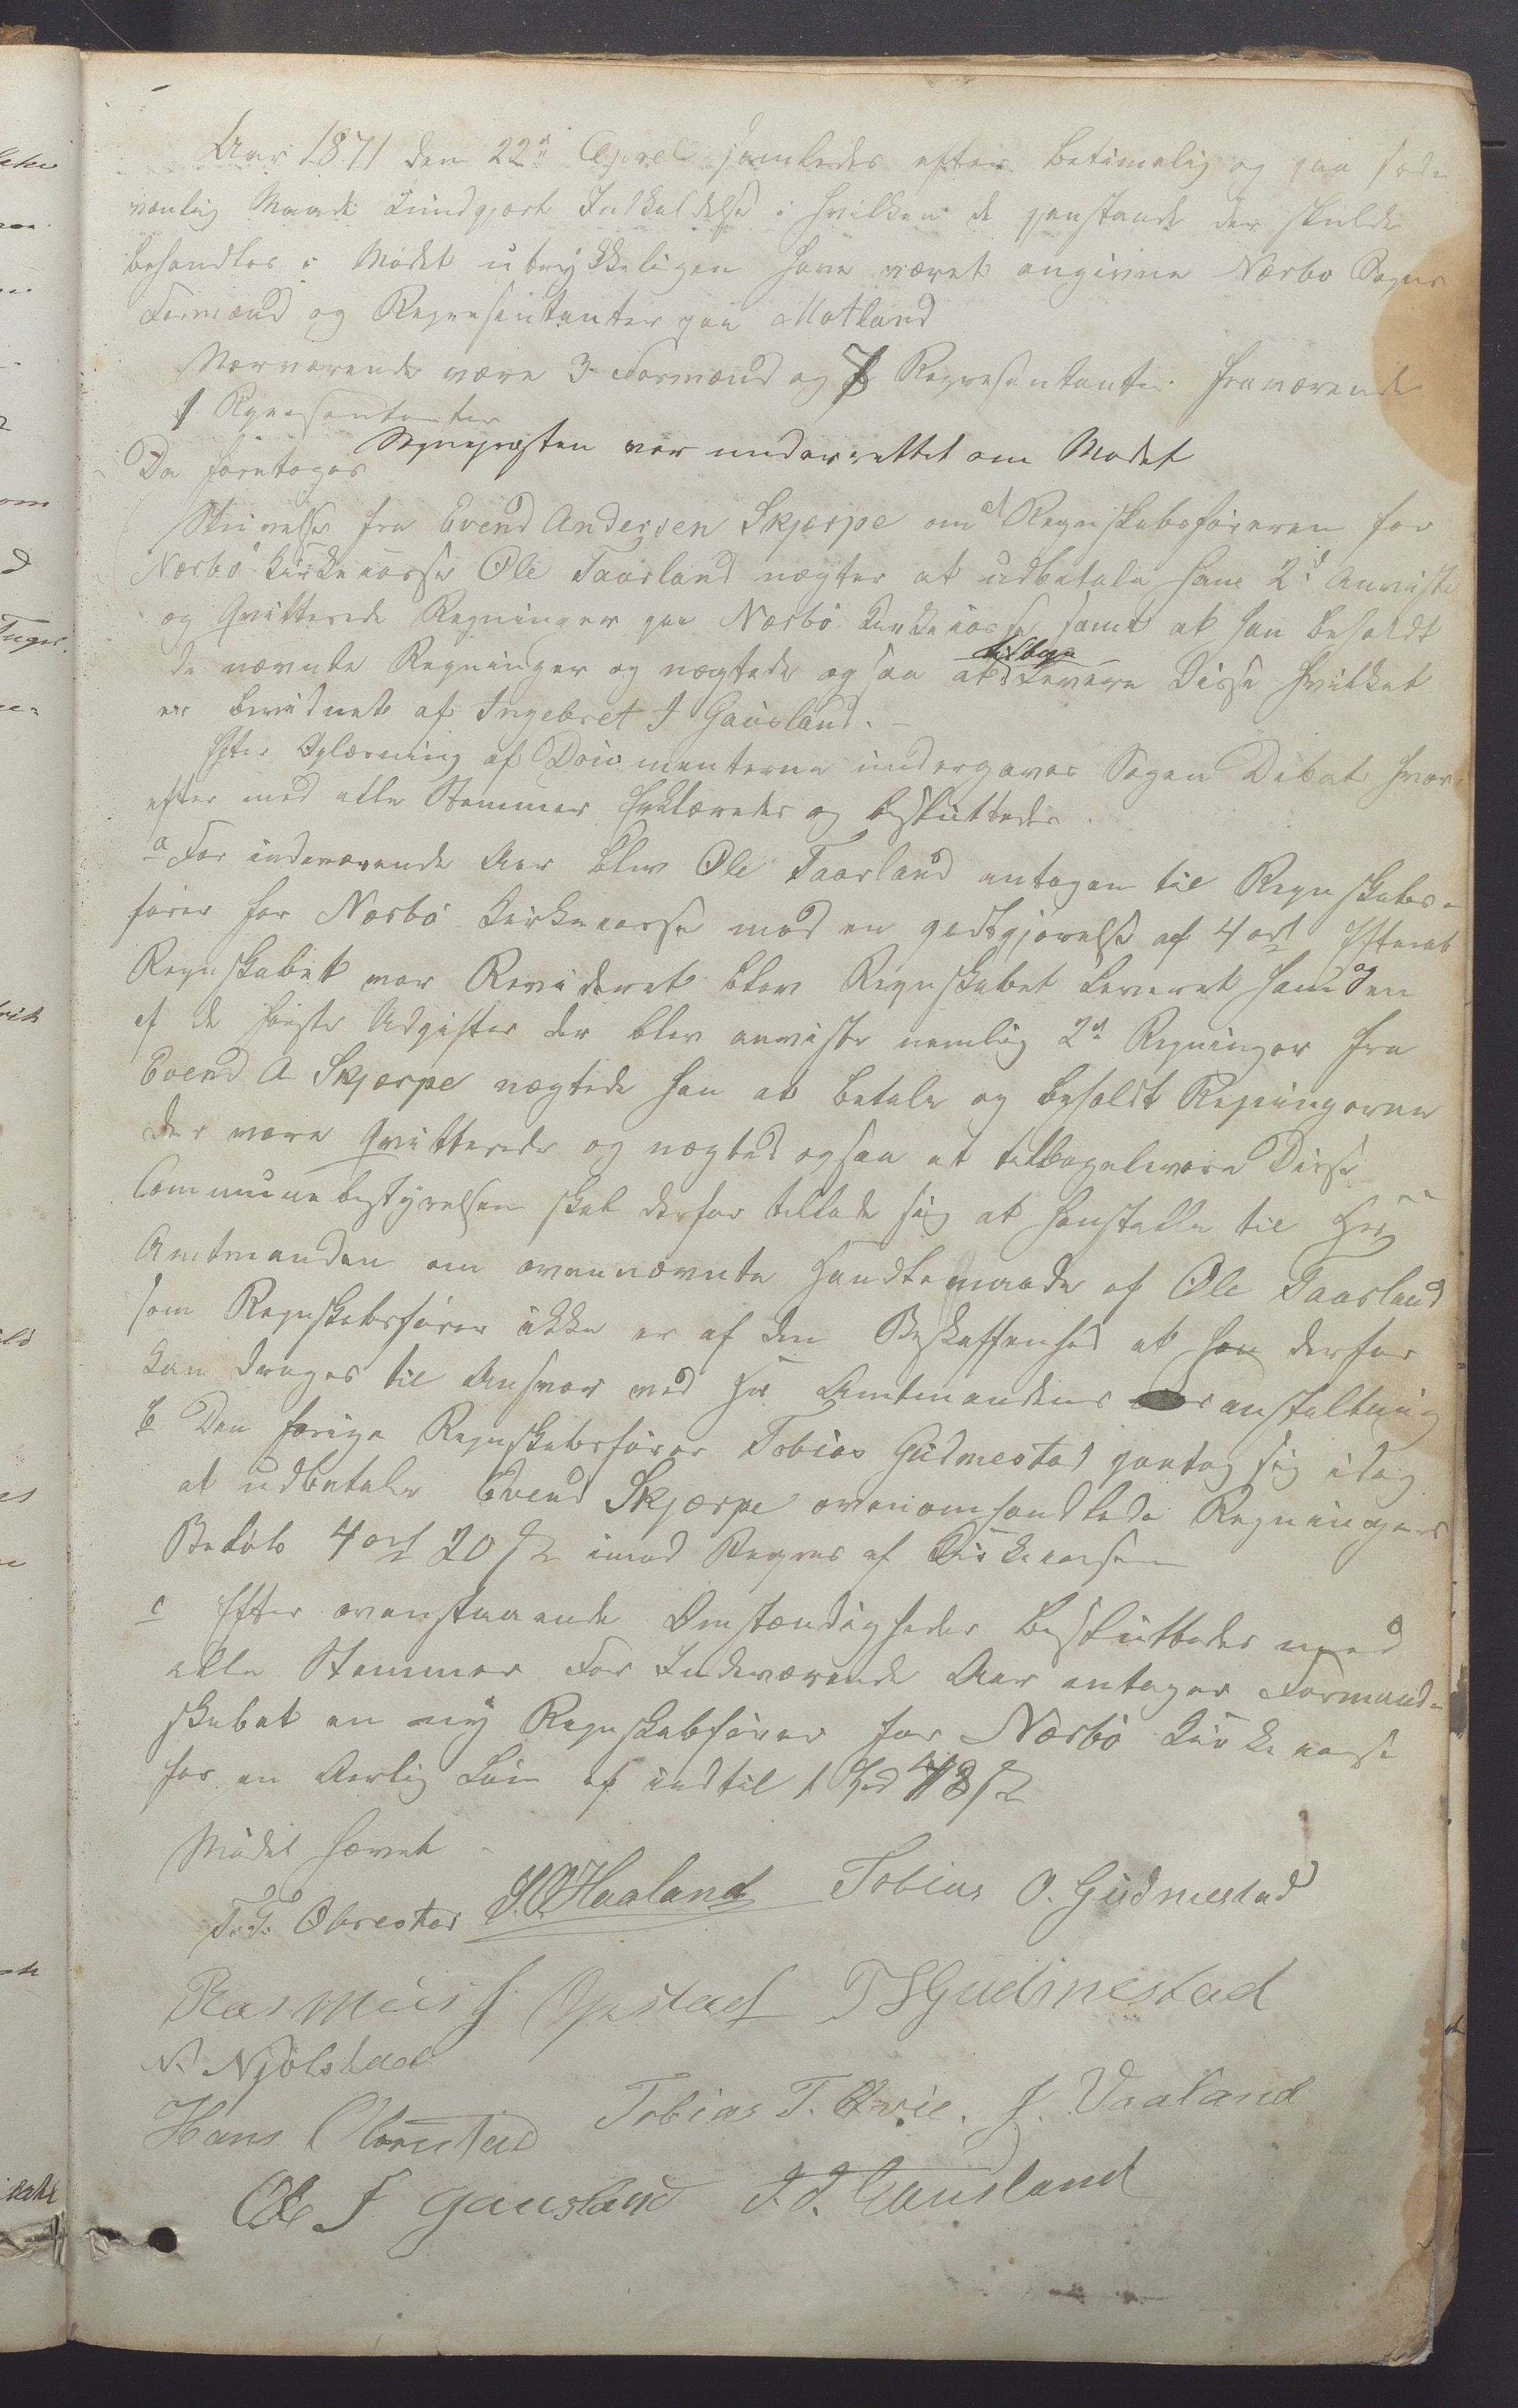 Aar 1871 den 22de April samledes efter betimelig og paa sæd-
vanlig Maade kundgjort Indkaldelse i hvilken de gjenstande der skulde
behandles i Mødet udtrykkeligen have været angivne Nærbø Sogns
Formænd og Repræsentanter paa Motland
Nærværende vare 3 Formænd og 7 Repræsentanter fraværende
1 Repræsentanter
Sognepresten var underrettet om Mødet
Da foretoges
Skrivelse fra Evend Andersen Skjærpe om at Regnskabsføreren for
Nærbø Kirkecasse Ole Taarland nægter at udbetale ham 2de Anviste
og Qvitterede Regninger paa Nærbø Kirkecasse, samt at han beholdt
de nævnte Regninger og nægtede ogsaa at tilbage levere Disse hvilket
er bevidnet af Ingebret J Gausland.
Efter Oplæsning af Documenterne undergaves Sagen Debat hvor-
efter med alle Stemmer Erklæredes og besluttedes.
a For indeværende Aar blev Ole Taarland antagen til Regnskabs-
fører for Nærbø Kirkecasse mod en godtgjørelse af 4 ort Efterat
Regnskabet var Revideret blev Regnskabet leveret ham og en
af de første Udgifter der blev anviste nemlig 2de Regninger fra
Evend A Skjærpe nægtede han at betale og beholdt Regningerne
der vare Qvitterede og nægted ogsaa at tilbagelevere Disse
Communebestyrelsen skal derfor tillade sig at henstille til Hr
Amtmanden om ovennævnte Handlemaade af Ole Taarland
som Regnskabsfører ikke er af den Beskaffenhed at han derfor
kan drages til Ansvar ved Hr Amtmandens foranstaltning
b Den forige Regnskabsfører Tobias Gudmestad paatog sig idag
at udbetale Evend Skjærpe ovenomhandlede Regningers
Beløb 4 ort 20 s imod Regres af Kirkecassen
c Efter ovenstaaende Omstændigheder besluttedes med
alle Stemmer For Indeværende Aar antager Formand-
skabet en ny Regnskabfører for Nærbø Kirkecasse
for en Aarlig Løn af indtil 1 Spd 48 s
Mødet hævet
T. T. Obrestad S. O. Haaland Tobias O. Gudmestad
Rasmus J. Opstad T S Gudmestad
N. Njølstad
Hans Obrestad Tobias T. Qvie. J. Vaaland
Ole J Gausland I. J. Gausland